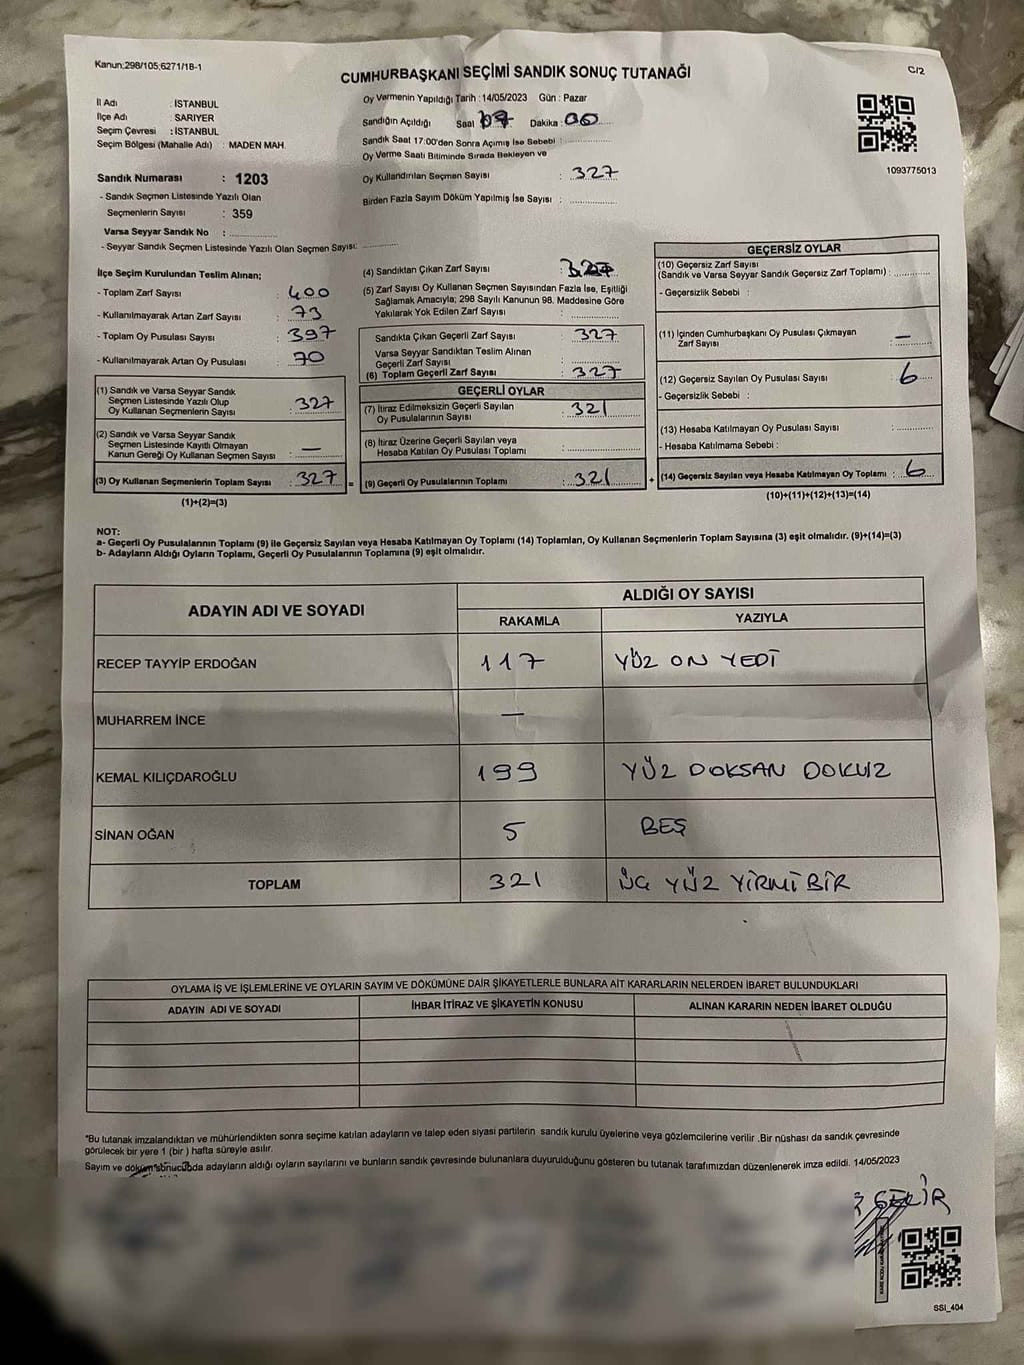 Kanun:298/105;6271/18-1
CUMHURBAŞKANI SEÇİMİ SANDIK SONUÇ TUTANAĞI
C/2
İl Adı : İSTANBUL
İlçe Adı : SARIYER
Seçim Çevresi : İSTANBUL
Seçim Bölgesi (Mahalle Adı) : MADEN MAH.
Sandık Numarası : 1203
- Sandık Seçmen Listesinde Yazılı Olan
Seçmenlerin Sayısı : 359
Varsa Seyyar Sandık No :
- Seyyar Sandık Seçmen Listesinde Yazılı Olan Seçmen Sayısı:
Oy Vermenin Yapıldığı Tarih : 14/05/2023 Gün : Pazar
Sandığın Açıldığı Saat 17 Dakika 00
Sandık Saat 17:00'den Sonra Açımış İse Sebebi :
Oy Verme Saati Bitiminde Sırada Bekleyen ve
Oy Kullandırılan Seçmen Sayısı : 327
Birden Fazla Sayım Döküm Yapılmış İse Sayısı :
1093775013
İlçe Seçim Kurulundan Teslim Alınan;
- Toplam Zarf Sayısı : 400
- Kullanılmayarak Artan Zarf Sayısı : 73
- Toplam Oy Pusulası Sayısı : 397
- Kullanılmayarak Artan Oy Pusulası : 70
(1) Sandık ve Varsa Seyyar Sandık
Seçmen Listesinde Yazılı Olup
Oy Kullanan Seçmenlerin Sayısı : 327
(2) Sandık ve Varsa Seyyar Sandık
Seçmen Listesinde Kayıtlı Olmayan
Kanun Gereği Oy Kullanan Seçmen Sayısı : —
(3) Oy Kullanan Seçmenlerin Toplam Sayısı : 327
(1)+(2)=(3)
(4) Sandıktan Çıkan Zarf Sayısı : 327
(5) Zarf Sayısı Oy Kullanan Seçmen Sayısından Fazla İse, Eşitliği
Sağlamak Amacıyla; 298 Sayılı Kanunun 98. Maddesine Göre
Yakılarak Yok Edilen Zarf Sayısı :
Sandıkta Çıkan Geçerli Zarf Sayısı : 327
Varsa Seyyar Sandıktan Teslim Alınan
Geçerli Zarf Sayısı :
(6) Toplam Geçerli Zarf Sayısı : 327
GEÇERLİ OYLAR
(7) İtiraz Edilmeksizin Geçerli Sayılan
Oy Pusulalarının Sayısı : 321
(8) İtiraz Üzerine Geçerli Sayılan veya
Hesaba Katılan Oy Pusulası Toplamı :
= (9) Geçerli Oy Pusulalarının Toplamı : 321 +
GEÇERSİZ OYLAR
(10) Geçersiz Zarf Sayısı
(Sandık ve Varsa Seyyar Sandık Geçersiz Zarf Toplamı) :
- Geçersizlik Sebebi :
(11) İçinden Cumhurbaşkanı Oy Pusulası Çıkmayan
Zarf Sayısı : —
(12) Geçersiz Sayılan Oy Pusulası Sayısı : 6
- Geçersizlik Sebebi :
(13) Hesaba Katılmayan Oy Pusulası Sayısı :
- Hesaba Katılmama Sebebi :
(14) Geçersiz Sayılan veya Hesaba Katılmayan Oy Toplamı : 6
(10)+(11)+(12)+(13)=(14)
NOT:
a- Geçerli Oy Pusulalarının Toplamı (9) ile Geçersiz Sayılan veya Hesaba Katılmayan Oy Toplamı (14) Toplamları, Oy Kullanan Seçmenlerin Toplam Sayısına (3) eşit olmalıdır. (9)+(14)=(3)
b- Adayların Aldığı Oyların Toplamı, Geçerli Oy Pusulalarının Toplamına (9) eşit olmalıdır.
ADAYIN ADI VE SOYADI
ALDIĞI OY SAYISI
RAKAMLA YAZIYLA
RECEP TAYYİP ERDOĞAN 117 YÜZ ON YEDİ
MUHARREM İNCE —
KEMAL KILIÇDAROĞLU 199 YÜZ DOKSAN DOKUZ
SİNAN OĞAN 5 BEŞ
TOPLAM 321 ÜÇ YÜZ YİRMİ BİR
OYLAMA İŞ VE İŞLEMLERİNE VE OYLARIN SAYIM VE DÖKÜMÜNE DAİR ŞİKAYETLERLE BUNLARA AİT KARARLARIN NELERDEN İBARET BULUNDUKLARI
ADAYIN ADI VE SOYADI İHBAR İTİRAZ VE ŞİKAYETİN KONUSU ALINAN KARARIN NEDEN İBARET OLDUĞU
*Bu tutanak imzalandıktan ve mühürlendikten sonra seçime katılan adayların ve talep eden siyasi partilerin sandık kurulu üyelerine veya gözlemcilerine verilir .Bir nüshası da sandık çevresinde
görülecek bir yere 1 (bir ) hafta süreyle asılır.
Sayım ve döküm sonucunda adayların aldığı oyların sayılarını ve bunların sandık çevresinde bulunanlara duyurulduğunu gösteren bu tutanak tarafımızdan düzenlenerek imza edildi. 14/05/2023
SSİ_404